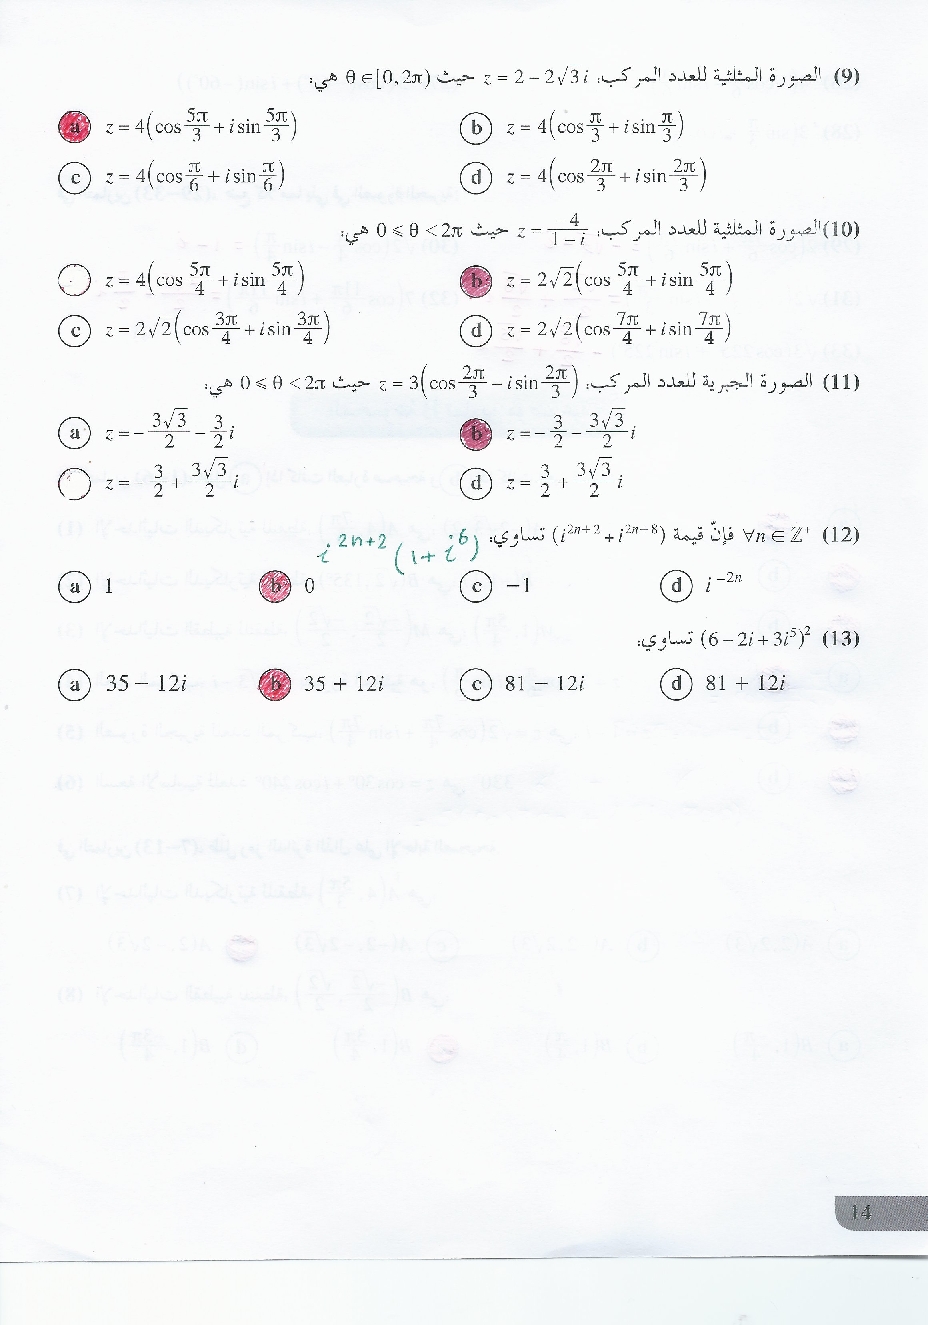 (9) الصورة المثلثية للعدد المركب: z = 2 − 2√3 i حيث θ ∈ [0, 2π) هي:
a z = 4(cos 5π/3 + i sin 5π/3) b z = 4(cos π/3 + i sin π/3)
c z = 4(cos π/6 + i sin π/6) d z = 4(cos 2π/3 + i sin 2π/3)
(10) الصورة المثلثية للعدد المركب: z = 4/(1 − i) حيث 0 ⩽ θ < 2π هي:
z = 4(cos 5π/4 + i sin 5π/4) b z = 2√2(cos 5π/4 + i sin 5π/4)
c z = 2√2(cos 3π/4 + i sin 3π/4) d z = 2√2(cos 7π/4 + i sin 7π/4)
(11) الصورة الجبرية للعدد المركب: z = 3(cos 2π/3 − i sin 2π/3) حيث 0 ⩽ θ < 2π هي:
a z = − 3√3/2 − 3/2 i b z = − 3/2 − 3√3/2 i
z = 3/2 + 3√3/2 i d z = 3/2 + 3√3/2 i
(12) ∀n ∈ ℤ⁺ فإنّ قيمة (i²ⁿ⁺² + i²ⁿ⁻⁸) تساوي:
i²ⁿ⁺² (1 + i⁶)
a 1 b 0 c −1 d i⁻²ⁿ
(13) (6 − 2i + 3i⁵)² تساوي:
a 35 − 12i b 35 + 12i c 81 − 12i d 81 + 12i
14